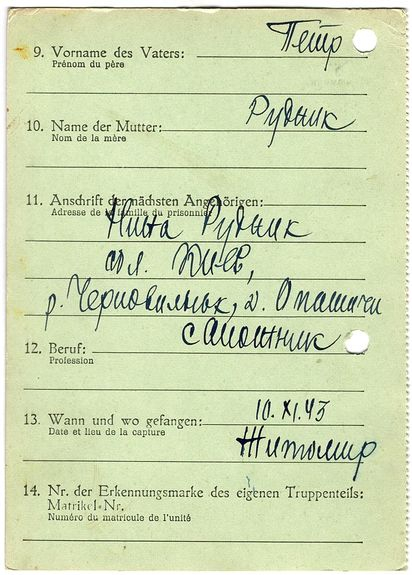 9. Vorname des Vaters: Петр
Prénom du père
10. Name der Mutter: Рудник
Nom de la mère
11. Anschrift der nächsten Angehörigen:
Adresse de la famille du prisonnier
Нина Рудник
обл. Киев,
р. Черновильск, д. Опатичи
сапожник
12. Beruf:
Profession
13. Wann und wo gefangen: 10.XI.43
Date et lieu de la capture
Житомир
14. Nr. der Erkennungsmarke des eigenen Truppenteils:
Matrikel-Nr.
Numéro du matricule de l'unité